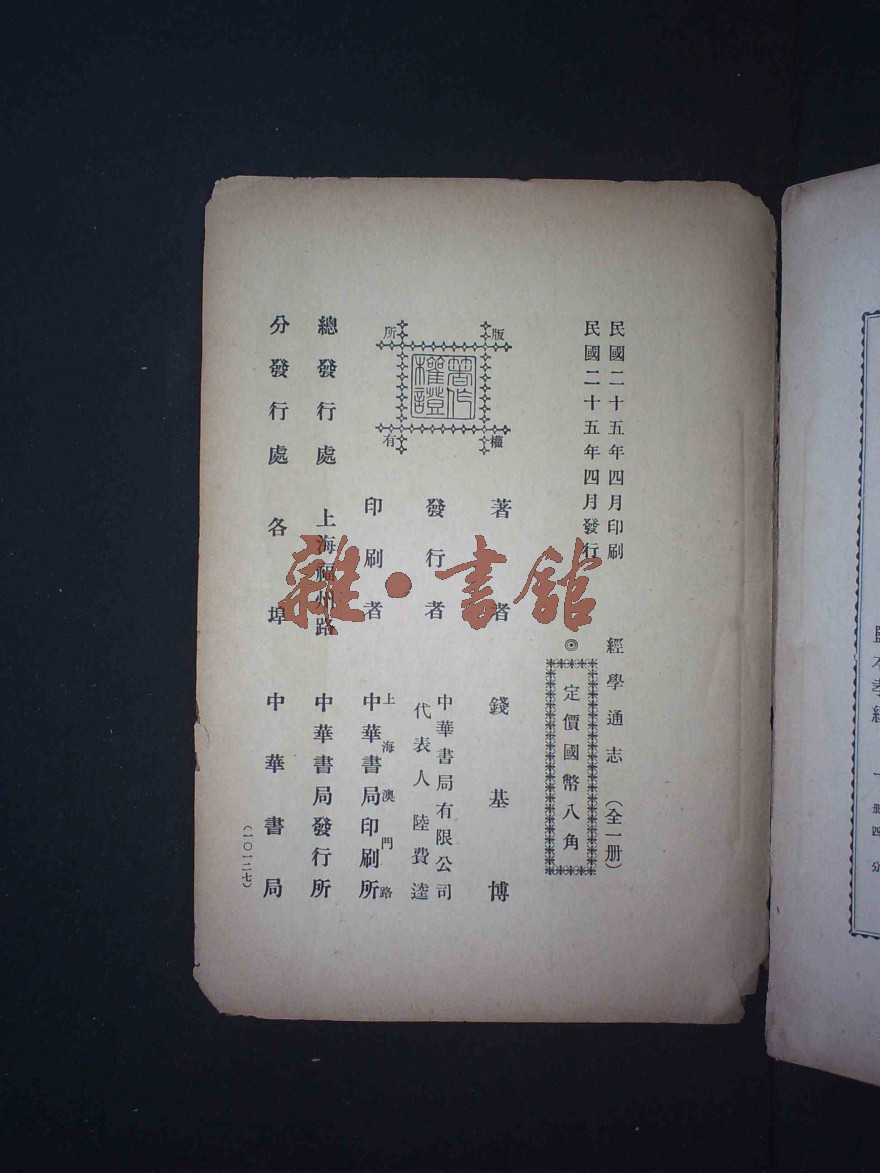 民國二十五年四月印刷
民國二十五年四月發行
經學通志（全一册）
◎定價國幣八角
版權所有
著作權證
著者 錢基博
發行者 中華書局有限公司
代表人 陸費逵
印刷者 上海澳門路
中華書局印刷所
總發行處 上海福州路 中華書局發行所
分發行處 各埠 中華書局
（一〇一二七）
雜·書館
册四分